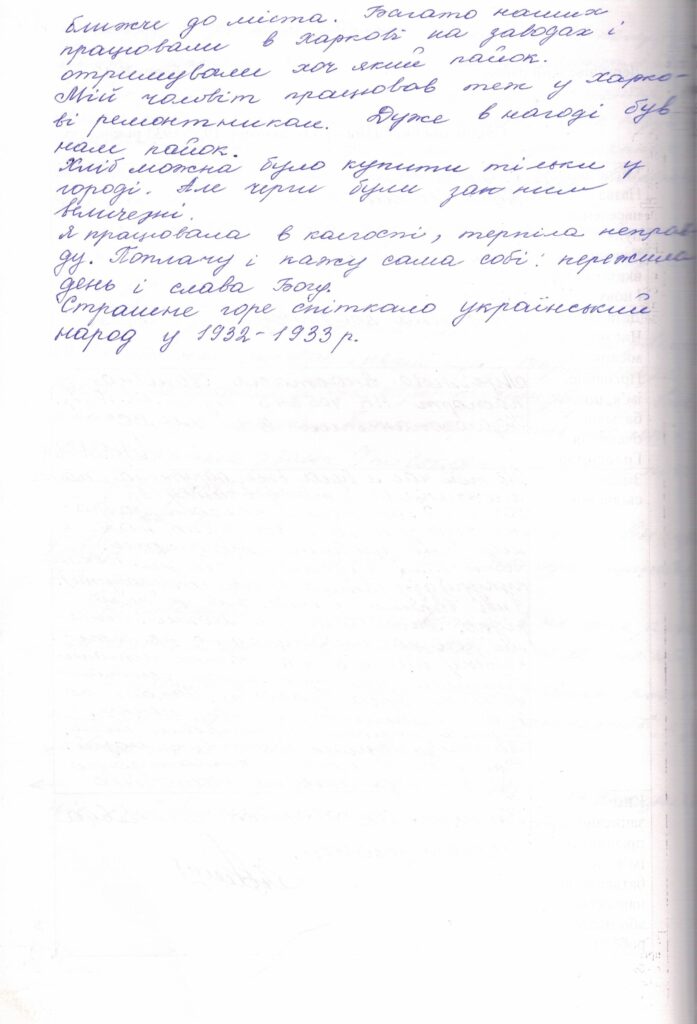 ближче до міста. Багато наших
працювали в Харкові на заводах і
отримували хоч який пайок.
Мій чоловік працював теж у Харко-
ві ремонтником. Дуже в нагоді був
нам пайок.
Хліб можна було купити тільки у
городі. Але черги були за ним
величезні.
Я працювала в колгості, терпіла неправ-
ду. Поплачу і кажу сама собі: пережила
день і слава Богу.
Страшне горе спіткало український
народ у 1932-1933 р.